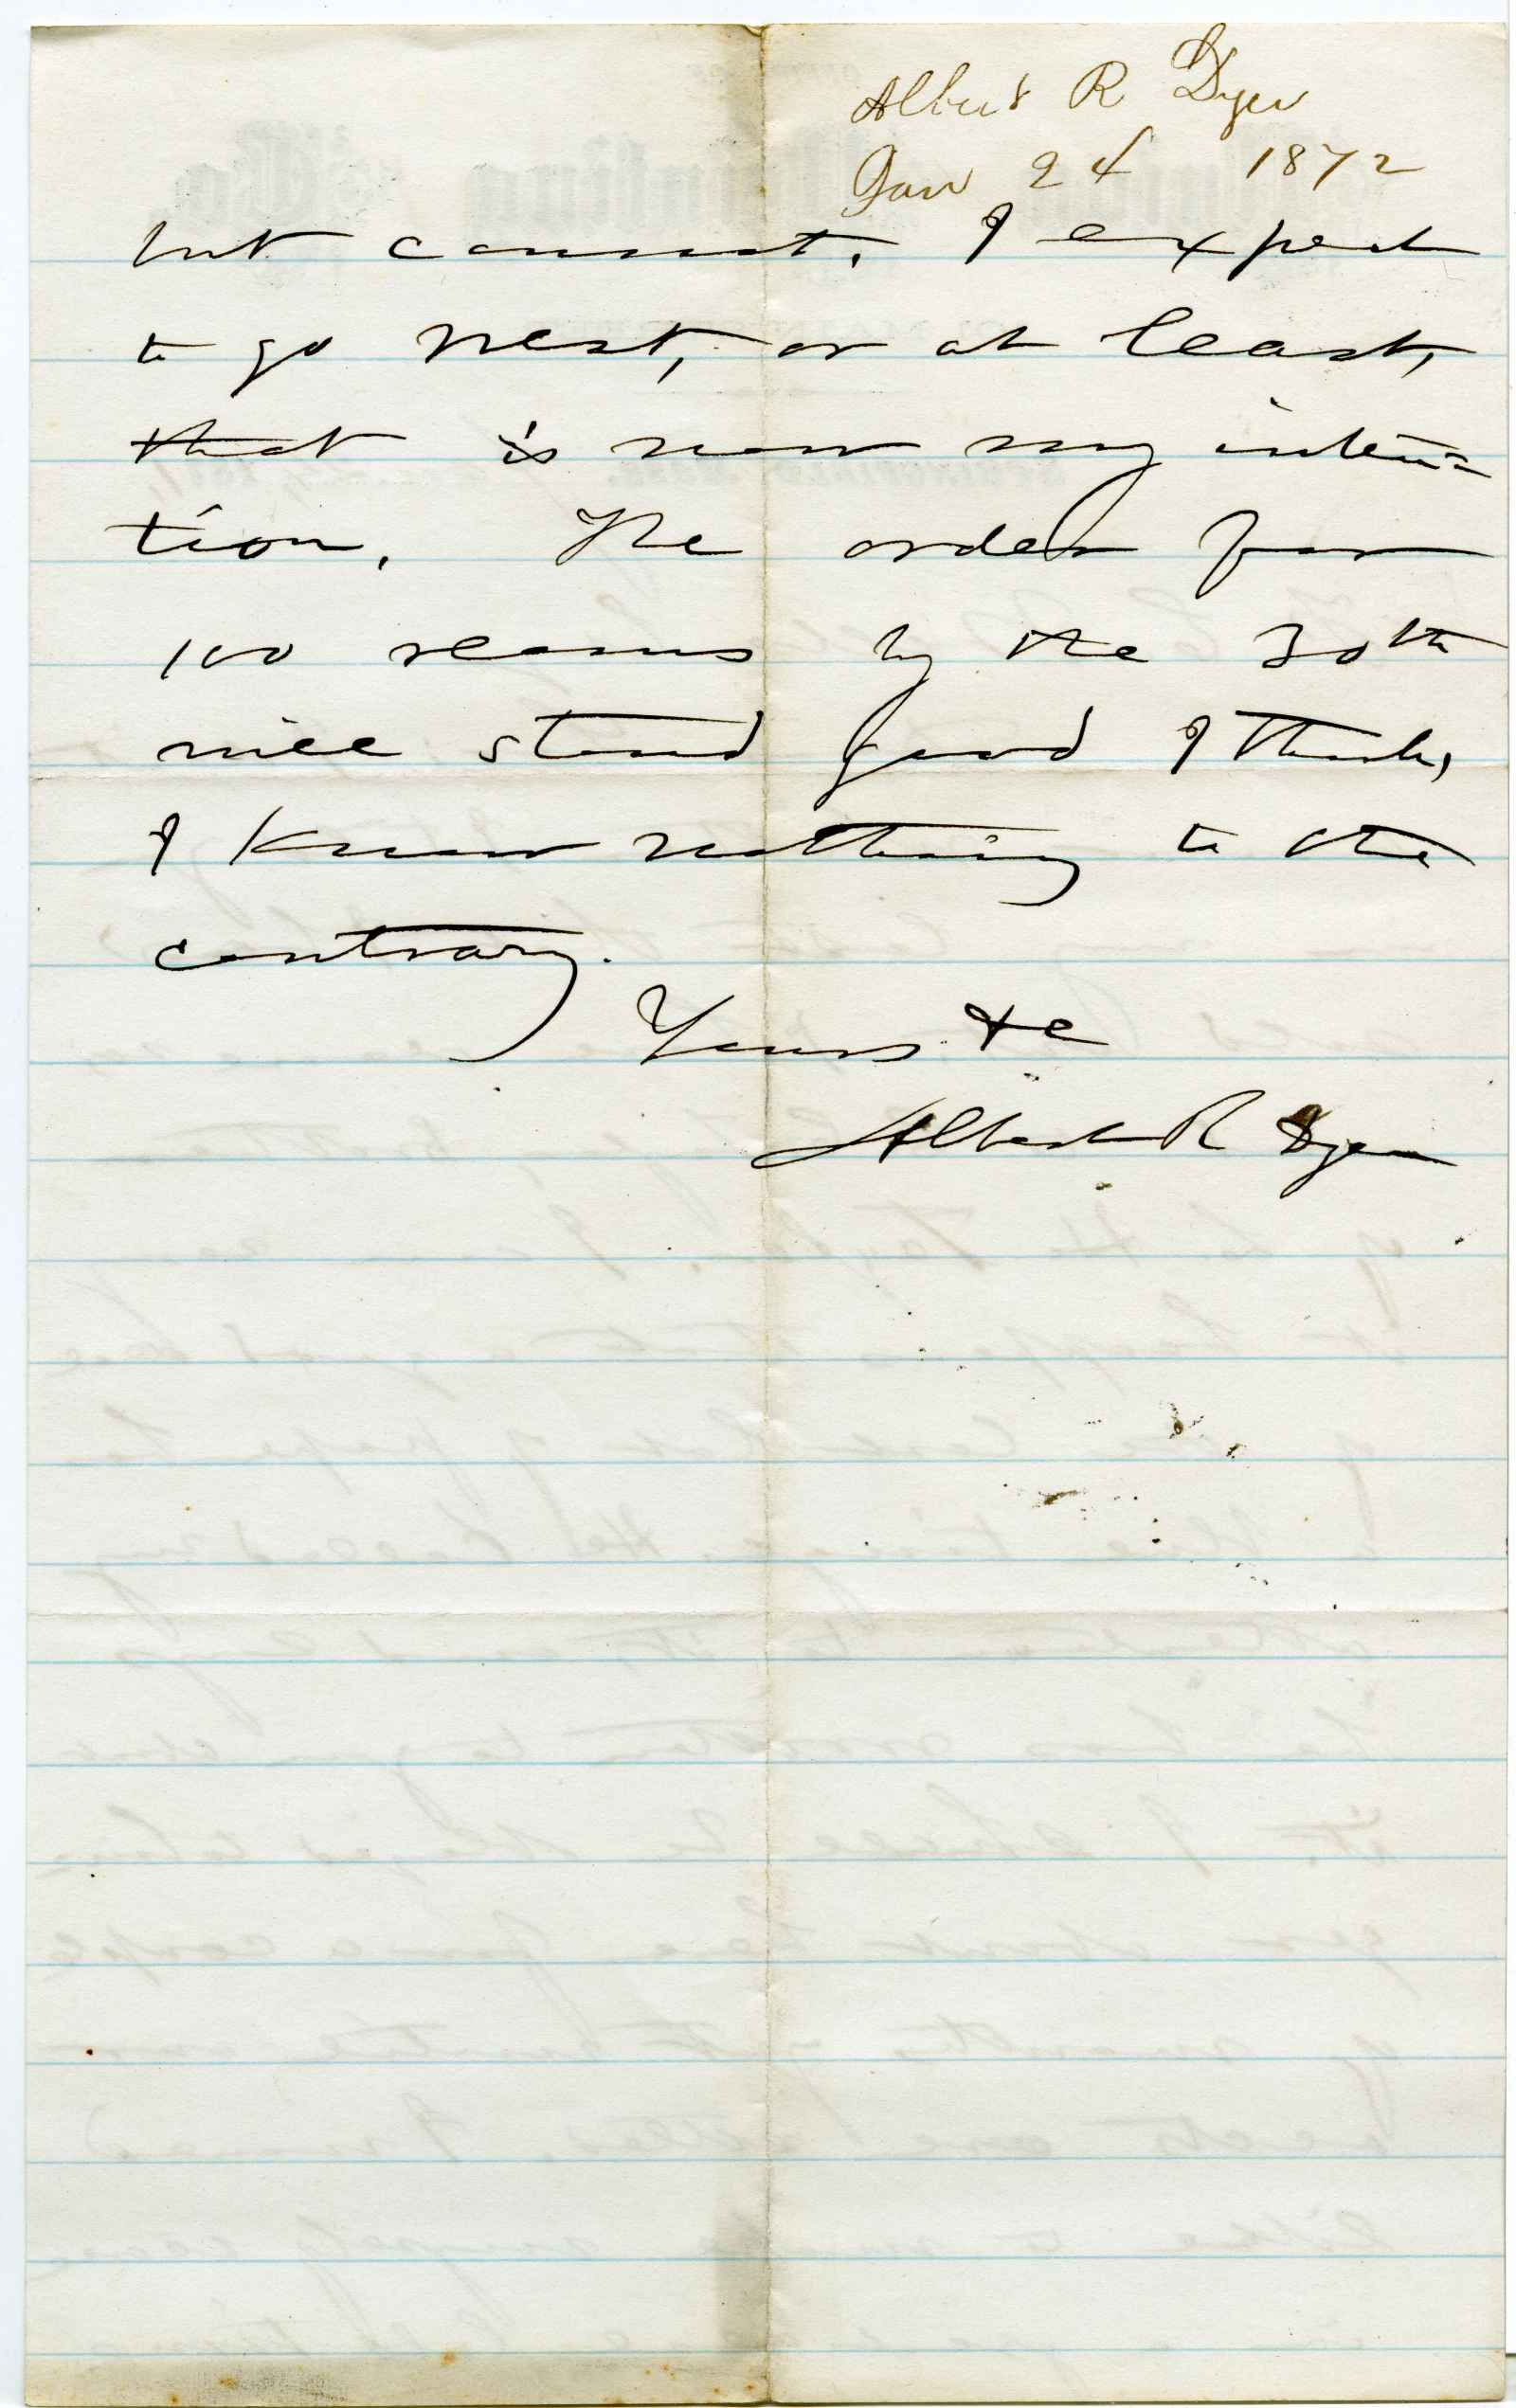 Albert R Dyer
Jan 24 1872
but cannot. I expect
to go West, or at least,
that is now my inten=
tion. The order for
100 reams by the 30th
will stand good I think,
I know nothing to the
contrary.
Yours &c
Albert R Dyer